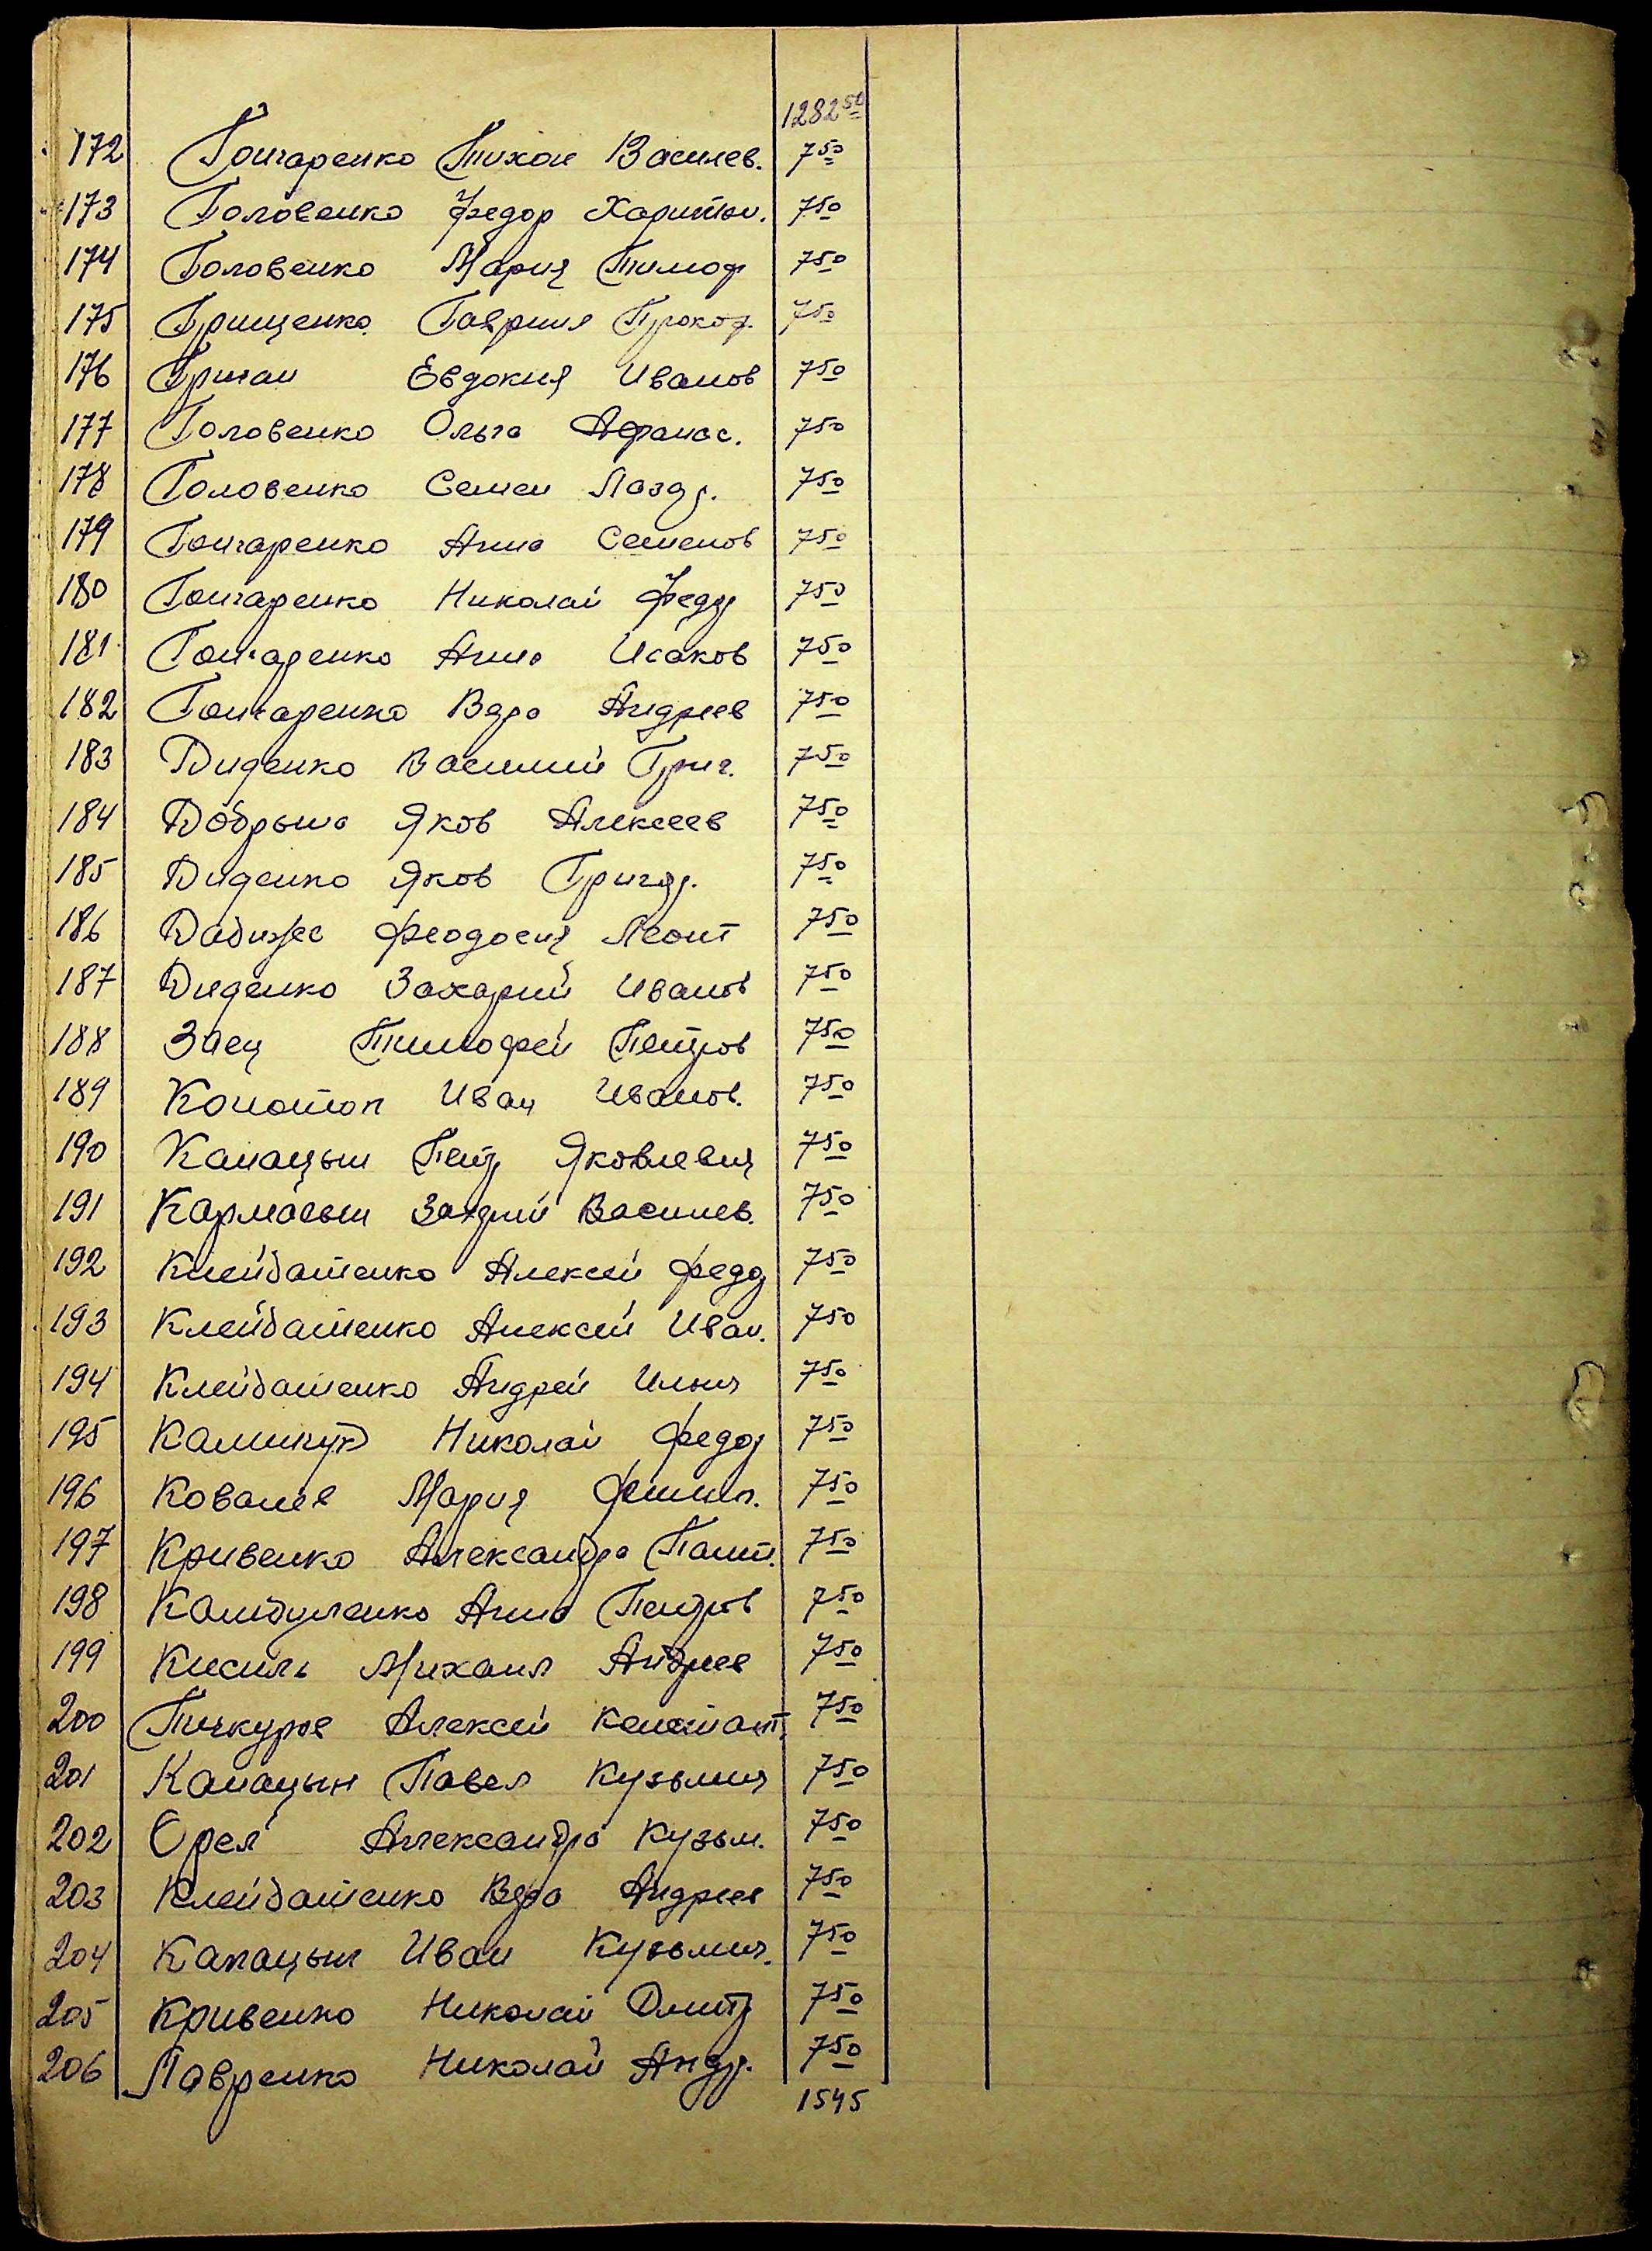 1282 50
172 Гончаренко Тихон Василев. 7 50
173 Головенко Федор Харитон. 7 50
174 Головенко Мария Тимоф 7 50
175 Грищенко Гаврил Прокоф. 7 50
176 Евдокия Иванов 7 50
177 Головенко Ольга Афанас. 7 50
178 Головенко Семен Лазар. 7 50
179 Гончаренко Анна Семенов 7 50
180 Гончаренко Николай Федор 7 50
181 Гончаренко Анна Исаков 7 50
182 Гончаренко Вера Андреев 7 50
183 Диденко Василий Григ. 7 50
184 Добрыша Яков Алексеев 7 50
185 Диденко Яков Григор. 7 50
186 Дабижа Феодосия Леонт 7 50
187 Диденко Захарий Иванов 7 50
188 Заец Тимофей Петров 7 50
189 Конотоп Иван Иванов. 7 50
190 Канацын Петр Яковлевич 7 50
191 Кармасын Захарий Василев. 7 50
192 Клейбатенко Алексей Федор 7 50
193 Клейбатенко Алексей Иван. 7 50
194 Клейбатенко Андрей Ильич 7 50
195 Калинчук Николай Федор 7 50
196 Ковалев Мария Филип. 7 50
197 Кривенко Александра Пант. 7 50
198 Анна Петров 7 50
199 Кисиль Михаил Андреев 7 50
200 Пичкуров Алексей Констант. 7 50
201 Канацын Павел Кузьмич 7 50
202 Орел Александра Кузьм. 7 50
203 Клейбатенко Вера Андреев 7 50
204 Канацын Иван Кузьмич. 7 50
205 Кривенко Николай Дмитр 7 50
206 Лавренко Николай Андр. 7 50
1545